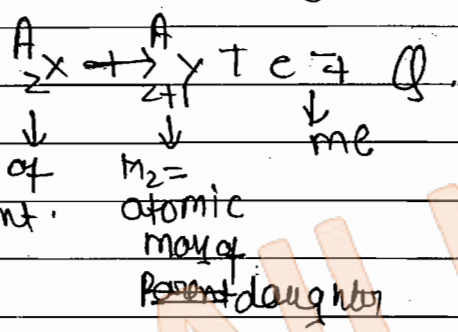 A X → A Y + e⁻ + Q.
Z Z+1
↓ ↓ ↓
of m₂ = me
nt. atomic
mass of
Parent daughter